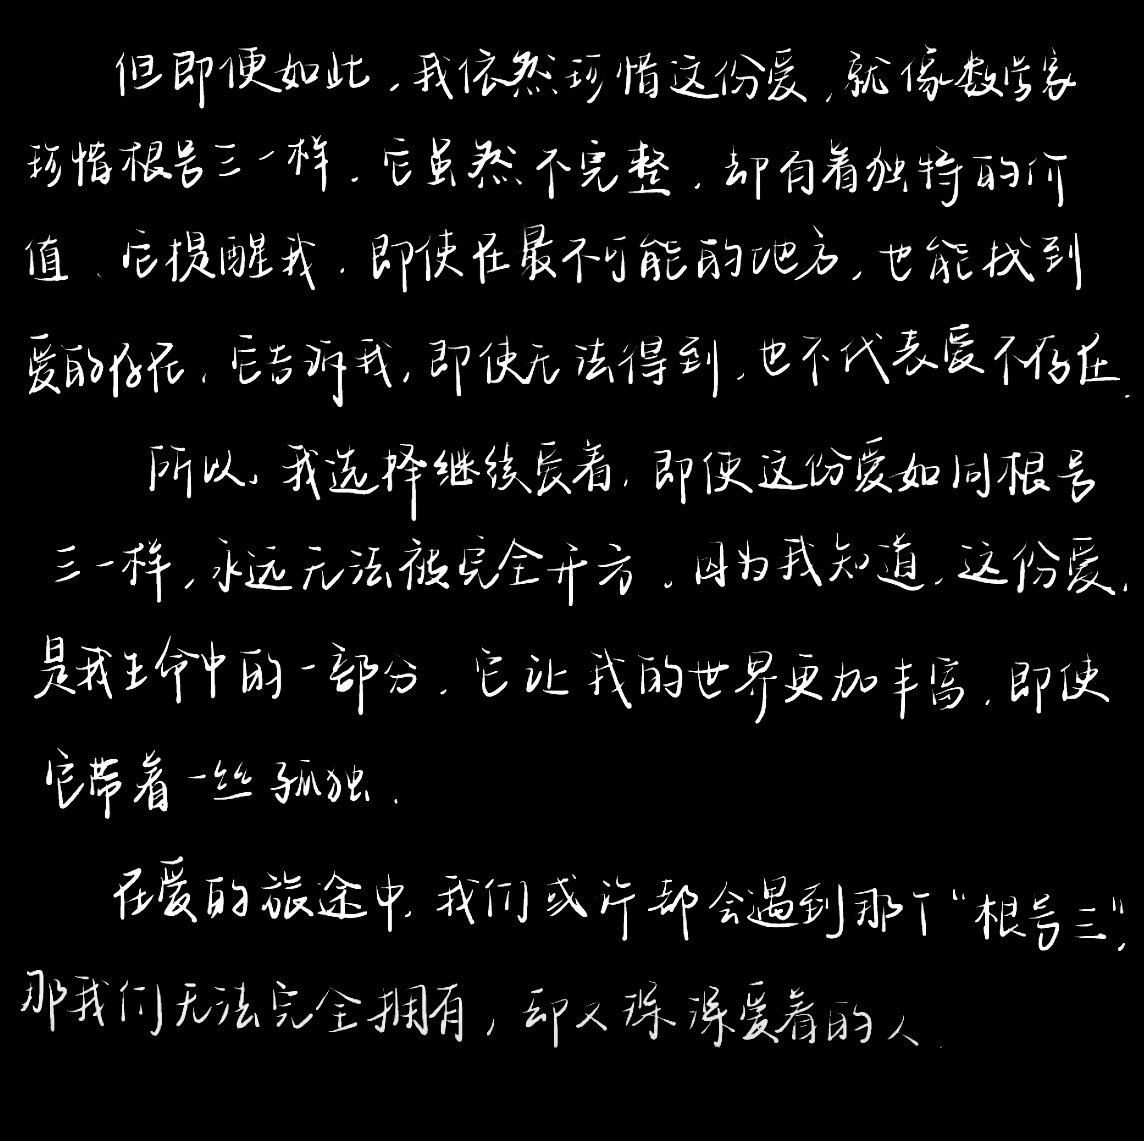 但即便如此，我依然珍惜这份爱，就像数学家
珍惜根号三一样．它虽然不完整．却有着独特的价
值．它提醒我．即使在最不可能的地方，也能找到
爱的存在．它告诉我，即使无法得到，也不代表爱不存在．
所以，我选择继续爱着，即便这份爱如同根号
三一样，永远无法被完全开方．因为我知道，这份爱，
是我生命中的一部分．它让我的世界更加丰富，即使
它带着一丝孤独．
在爱的旅途中，我们或许都会遇到那个“根号三”，
那我们无法完全拥有，却又深深爱着的人．